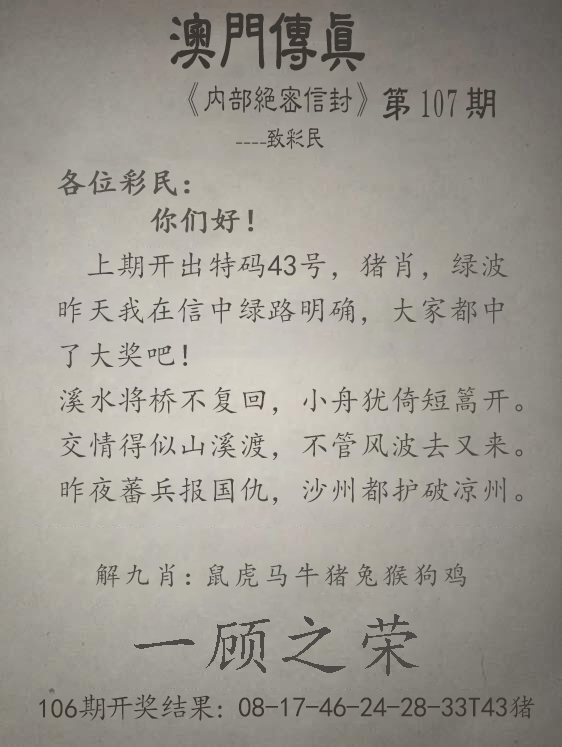 澳門傳真
《内部絕密信封》第107期
----致彩民
各位彩民：
你们好！
上期开出特码43号，猪肖，绿波
昨天我在信中绿路明确，大家都中
了大奖吧！
溪水将桥不复回，小舟犹倚短篙开。
交情得似山溪渡，不管风波去又来。
昨夜蕃兵报国仇，沙州都护破凉州。
解九肖：鼠虎马牛猪兔猴狗鸡
一顾之荣
106期开奖结果：08-17-46-24-28-33T43猪